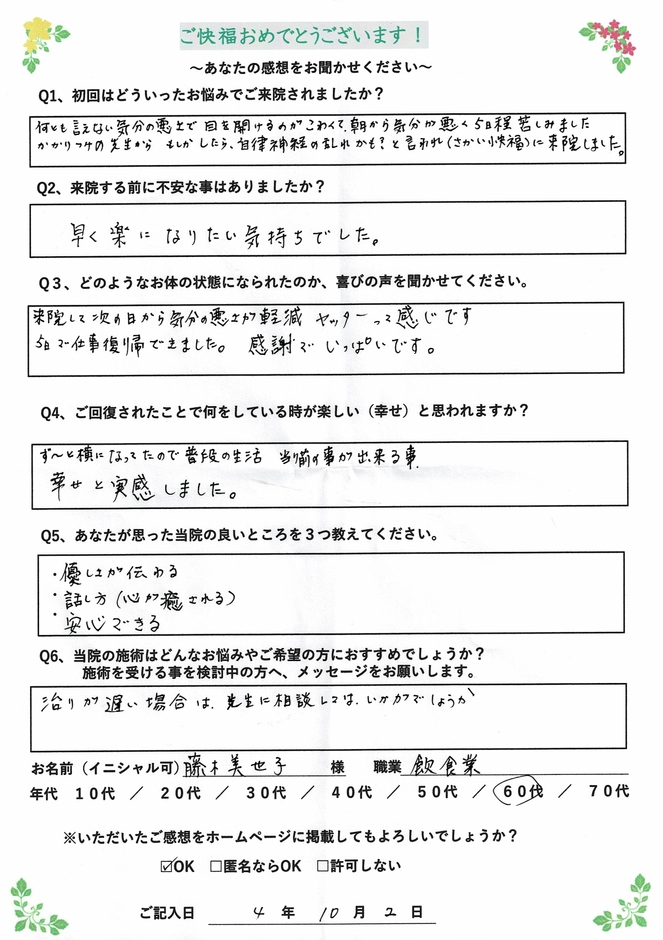 ご快福おめでとうございます！
～あなたの感想をお聞かせください～
Q1、初回はどういったお悩みでご来院されましたか？
何とも言えない気分の悪さで目を開けるのがこわくて、朝から気分が悪く5日程苦しみました
かかりつけの先生からもしかしたら、自律神経の乱れかも？と言われ(さかい快福)に来院しました。
Q2、来院する前に不安な事はありましたか？
早く楽になりたい気持ちでした。
Q３、どのようなお体の状態になられたのか、喜びの声を聞かせてください。
来院して次の日から気分の悪さが軽減 ヤッターって感じです
5日で仕事復帰できました。 感謝でいっぱいです。
Q4、ご回復されたことで何をしている時が楽しい（幸せ）と思われますか？
ず～と横になってたので普段の生活 当り前の事が出来る事
幸せと実感しました。
Q5、あなたが思った当院の良いところを３つ教えてください。
・優しさが伝わる
・話し方(心が癒される)
・安心できる
Q6、当院の施術はどんなお悩みやご希望の方におすすめでしょうか？
施術を受ける事を検討中の方へ、メッセージをお願いします。
治りが遅い場合は、先生に相談しては、いかがでしょうか
お名前（イニシャル可）藤木美世子 様 職業 飲食業
年代 １０代 ／ ２０代 ／ ３０代 ／ ４０代 ／ ５０代 ／ ６０代 ／ ７０代
※いただいたご感想をホームページに掲載してもよろしいでしょうか？
☑OK □匿名ならOK □許可しない
ご記入日 4 年 10 月 2 日